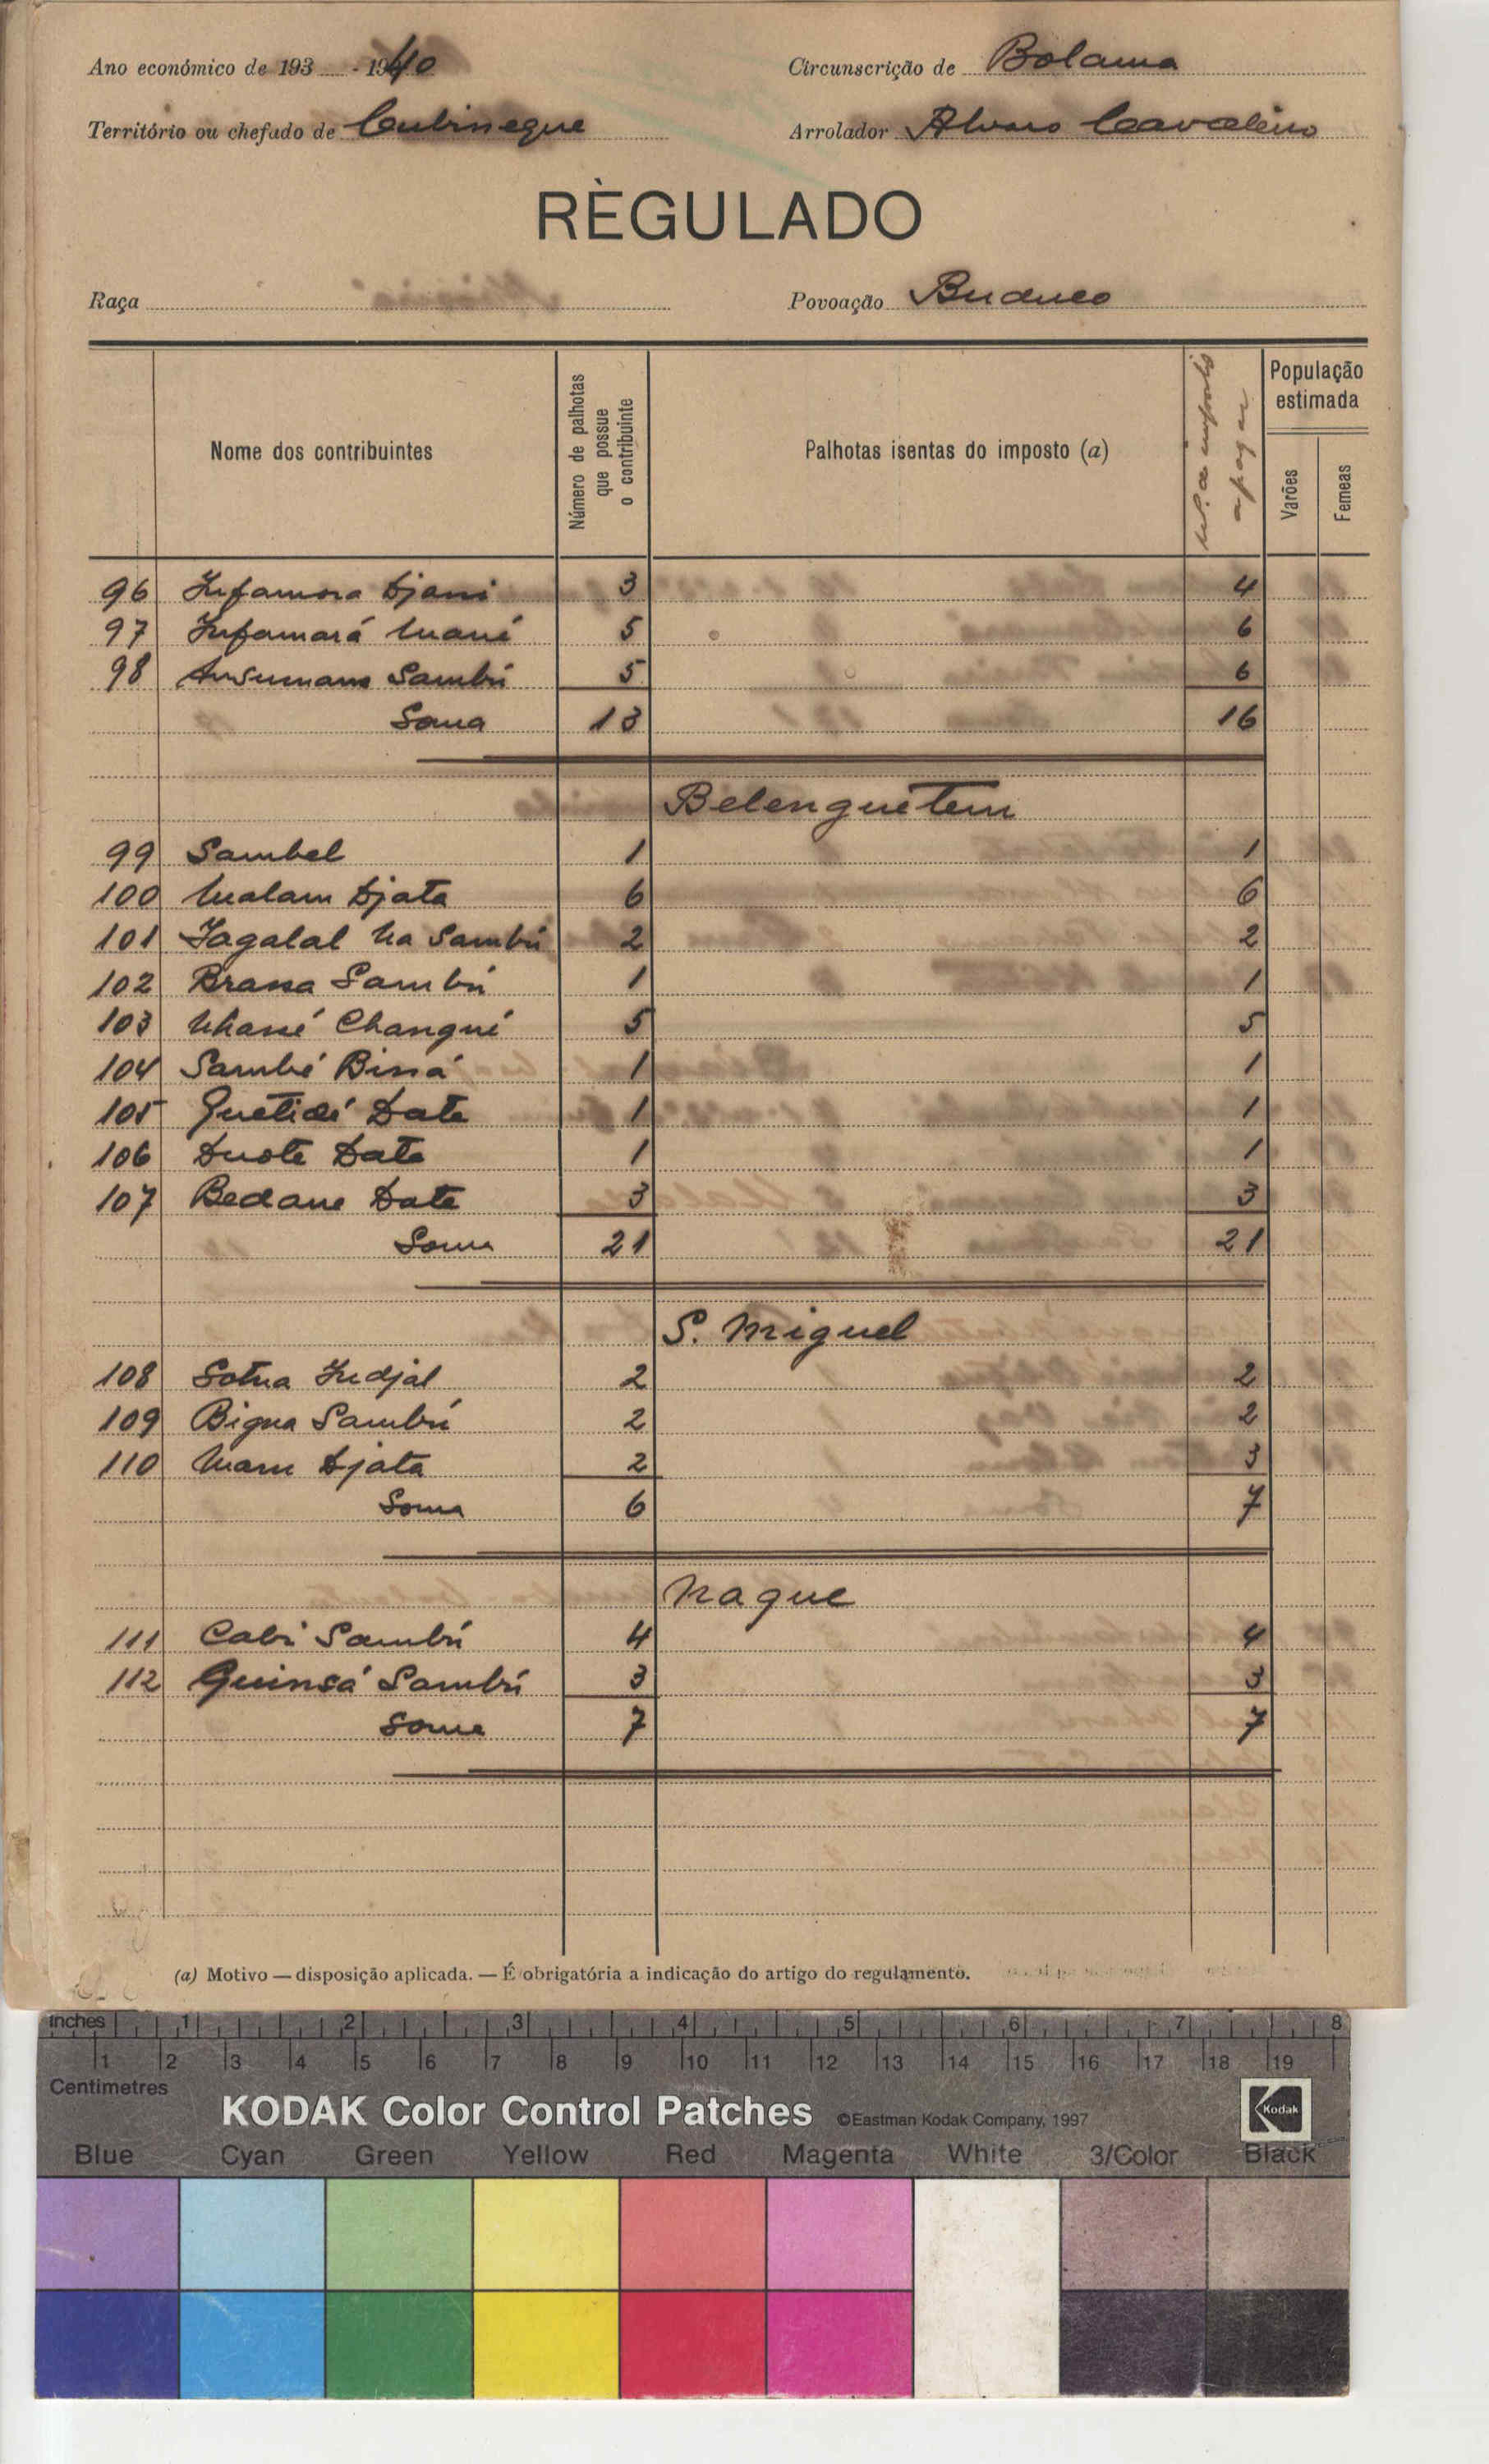 Ano económico de 193 - 1940
Circunscrição de Bolama
Território ou chefado de Cubisseque
Arrolador Alvaro Cavaleiro
RÈGULADO
Raça
Povoação Buduco
Nome dos contribuintes
Número de palhotas que possue o contribuinte
Palhotas isentas do imposto (a)
N.º de impostos a pagar
População estimada
Varões
Femeas
96 Infamara Djassi 3 4
97 Infamará Mané 5 6
98 Ansumane Sambú 5 6
Soma 13 16
Belenguetem
99 Sambel 1 1
100 Malam Djata 6 6
101 Jagalal Na Sambú 2 2
102 Brassa Sambú 1 1
103 Nhassé Changué 5 5
104 Sambé Bissá 1 1
105 Quetidé Data 1 1
106 Duote Data 1 1
107 Bedane Data 3 3
Soma 21 21
S. Miguel
108 Sotna Indjal 2 2
109 Bigna Sambú 2 2
110 Mam Djata 2 3
Soma 6 7
Naque
111 Cabi Sambú 4 4
112 Quinsá Sambú 3 3
Soma 7 7
(a) Motivo — disposição aplicada. — É obrigatória a indicação do artigo do regulamento.
Inches 1 2 3 4 5 6 7 8
1 2 3 4 5 6 7 8 9 10 11 12 13 14 15 16 17 18 19
Centimetres
KODAK Color Control Patches ©Eastman Kodak Company, 1997 Kodak
Blue Cyan Green Yellow Red Magenta White 3/Color Black